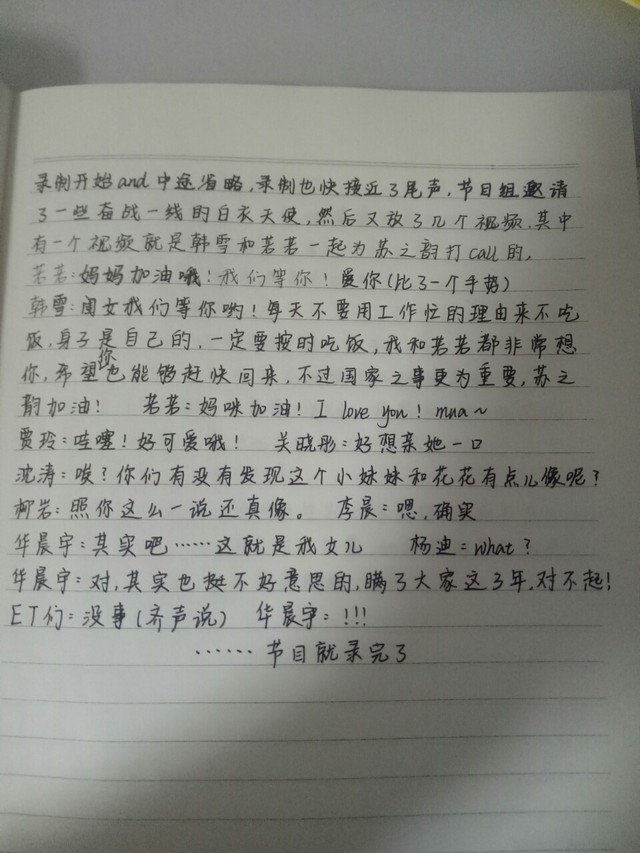 录制开始and中途省略,录制也快接近了尾声,节目组邀请
了一些奋战一线的白衣天使,然后又放了几个视频,其中
有一个视频就是韩雪和若若一起为苏之韵打call的,
若若:妈妈加油哦!我们等你!爱你(比了一个手势)
韩雪:闺女我们等你哟!每天不要用工作忙的理由来不吃
饭,身子是自己的,一定要按时吃饭,我和若若都非常想
你,希望你也能够赶快回来,不过国家之事更为重要,苏之
韵加油! 若若:妈咪加油!I love you!mua~
贾玲:哇噻!好可爱哦! 关晓彤:好想亲她一口
沈涛:唉?你们有没有发现这个小妹妹和花花有点儿像呢?
柳岩:照你这么一说还真像。 李晨:嗯,确实
华晨宇:其实吧……这就是我女儿 杨迪:what?
华晨宇:对,其实也挺不好意思的,瞒了大家这3年,对不起!
ET们:没事(齐声说) 华晨宇:!!!
……节目就录完了